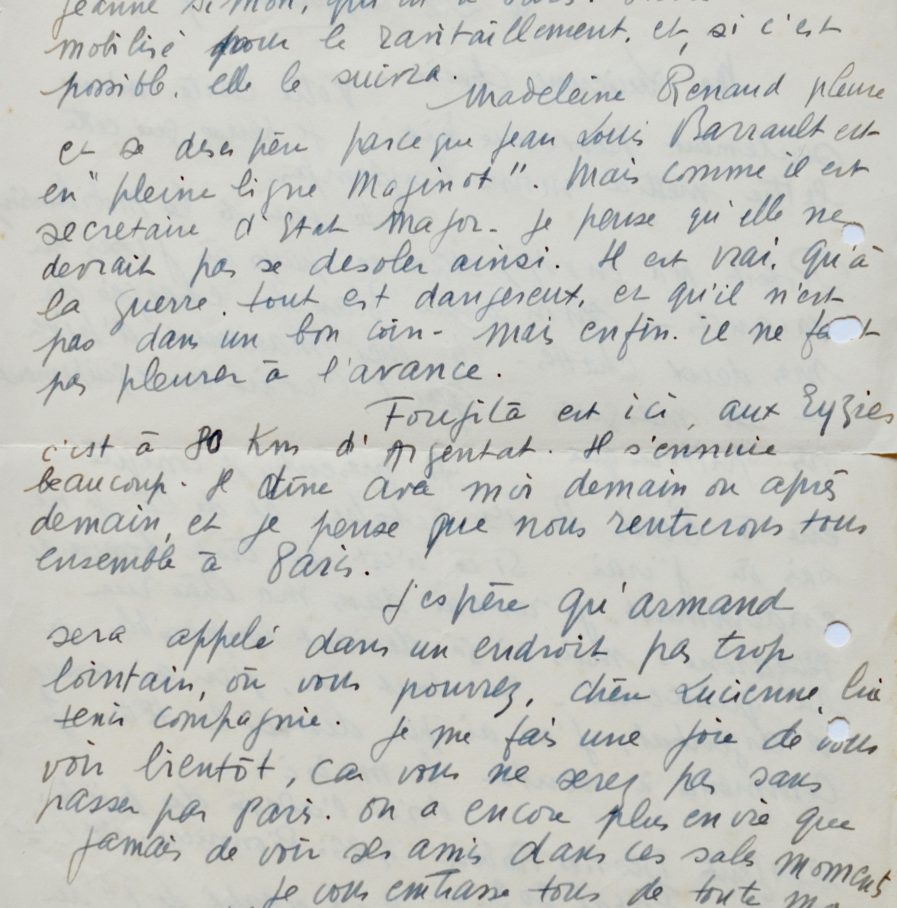 Jeanne Simon, qui
mobilisé pour le ravitaillement. et, si c'est
possible. elle le suivra.
Madeleine Renaud pleure
et se desespère parceque Jean Louis Barrault est
en "pleine ligne Maginot". Mais comme il est
secretaire d'Etat Major - Je pense qu'elle ne
devrait pas se desoler ainsi. Il est vrai, qu'à
la guerre. tout est dangereux, et qu'il n'est
pas dans un bon coin - mais enfin. il ne faut
pas pleurer à l'avance.
Foujita est ici, aux Eyzies
c'est à 80 Kms d'Argentat. Il s'ennuie
beaucoup. Il dîne avec moi demain ou après
demain, et je pense que nous rentrerons tous
ensemble à Paris.
J'espère qu'armand
sera appelé dans un endroit pas trop
lointain, où vous pourrez, chère Lucienne, lui
tenir compagnie. Je me fais une joie de vous
voir bientôt, car vous ne serez pas sans
passer par Paris. On a encore plus envie que
jamais de voir ses amis dans ces sales moments
Je vous embrasse tous de toute